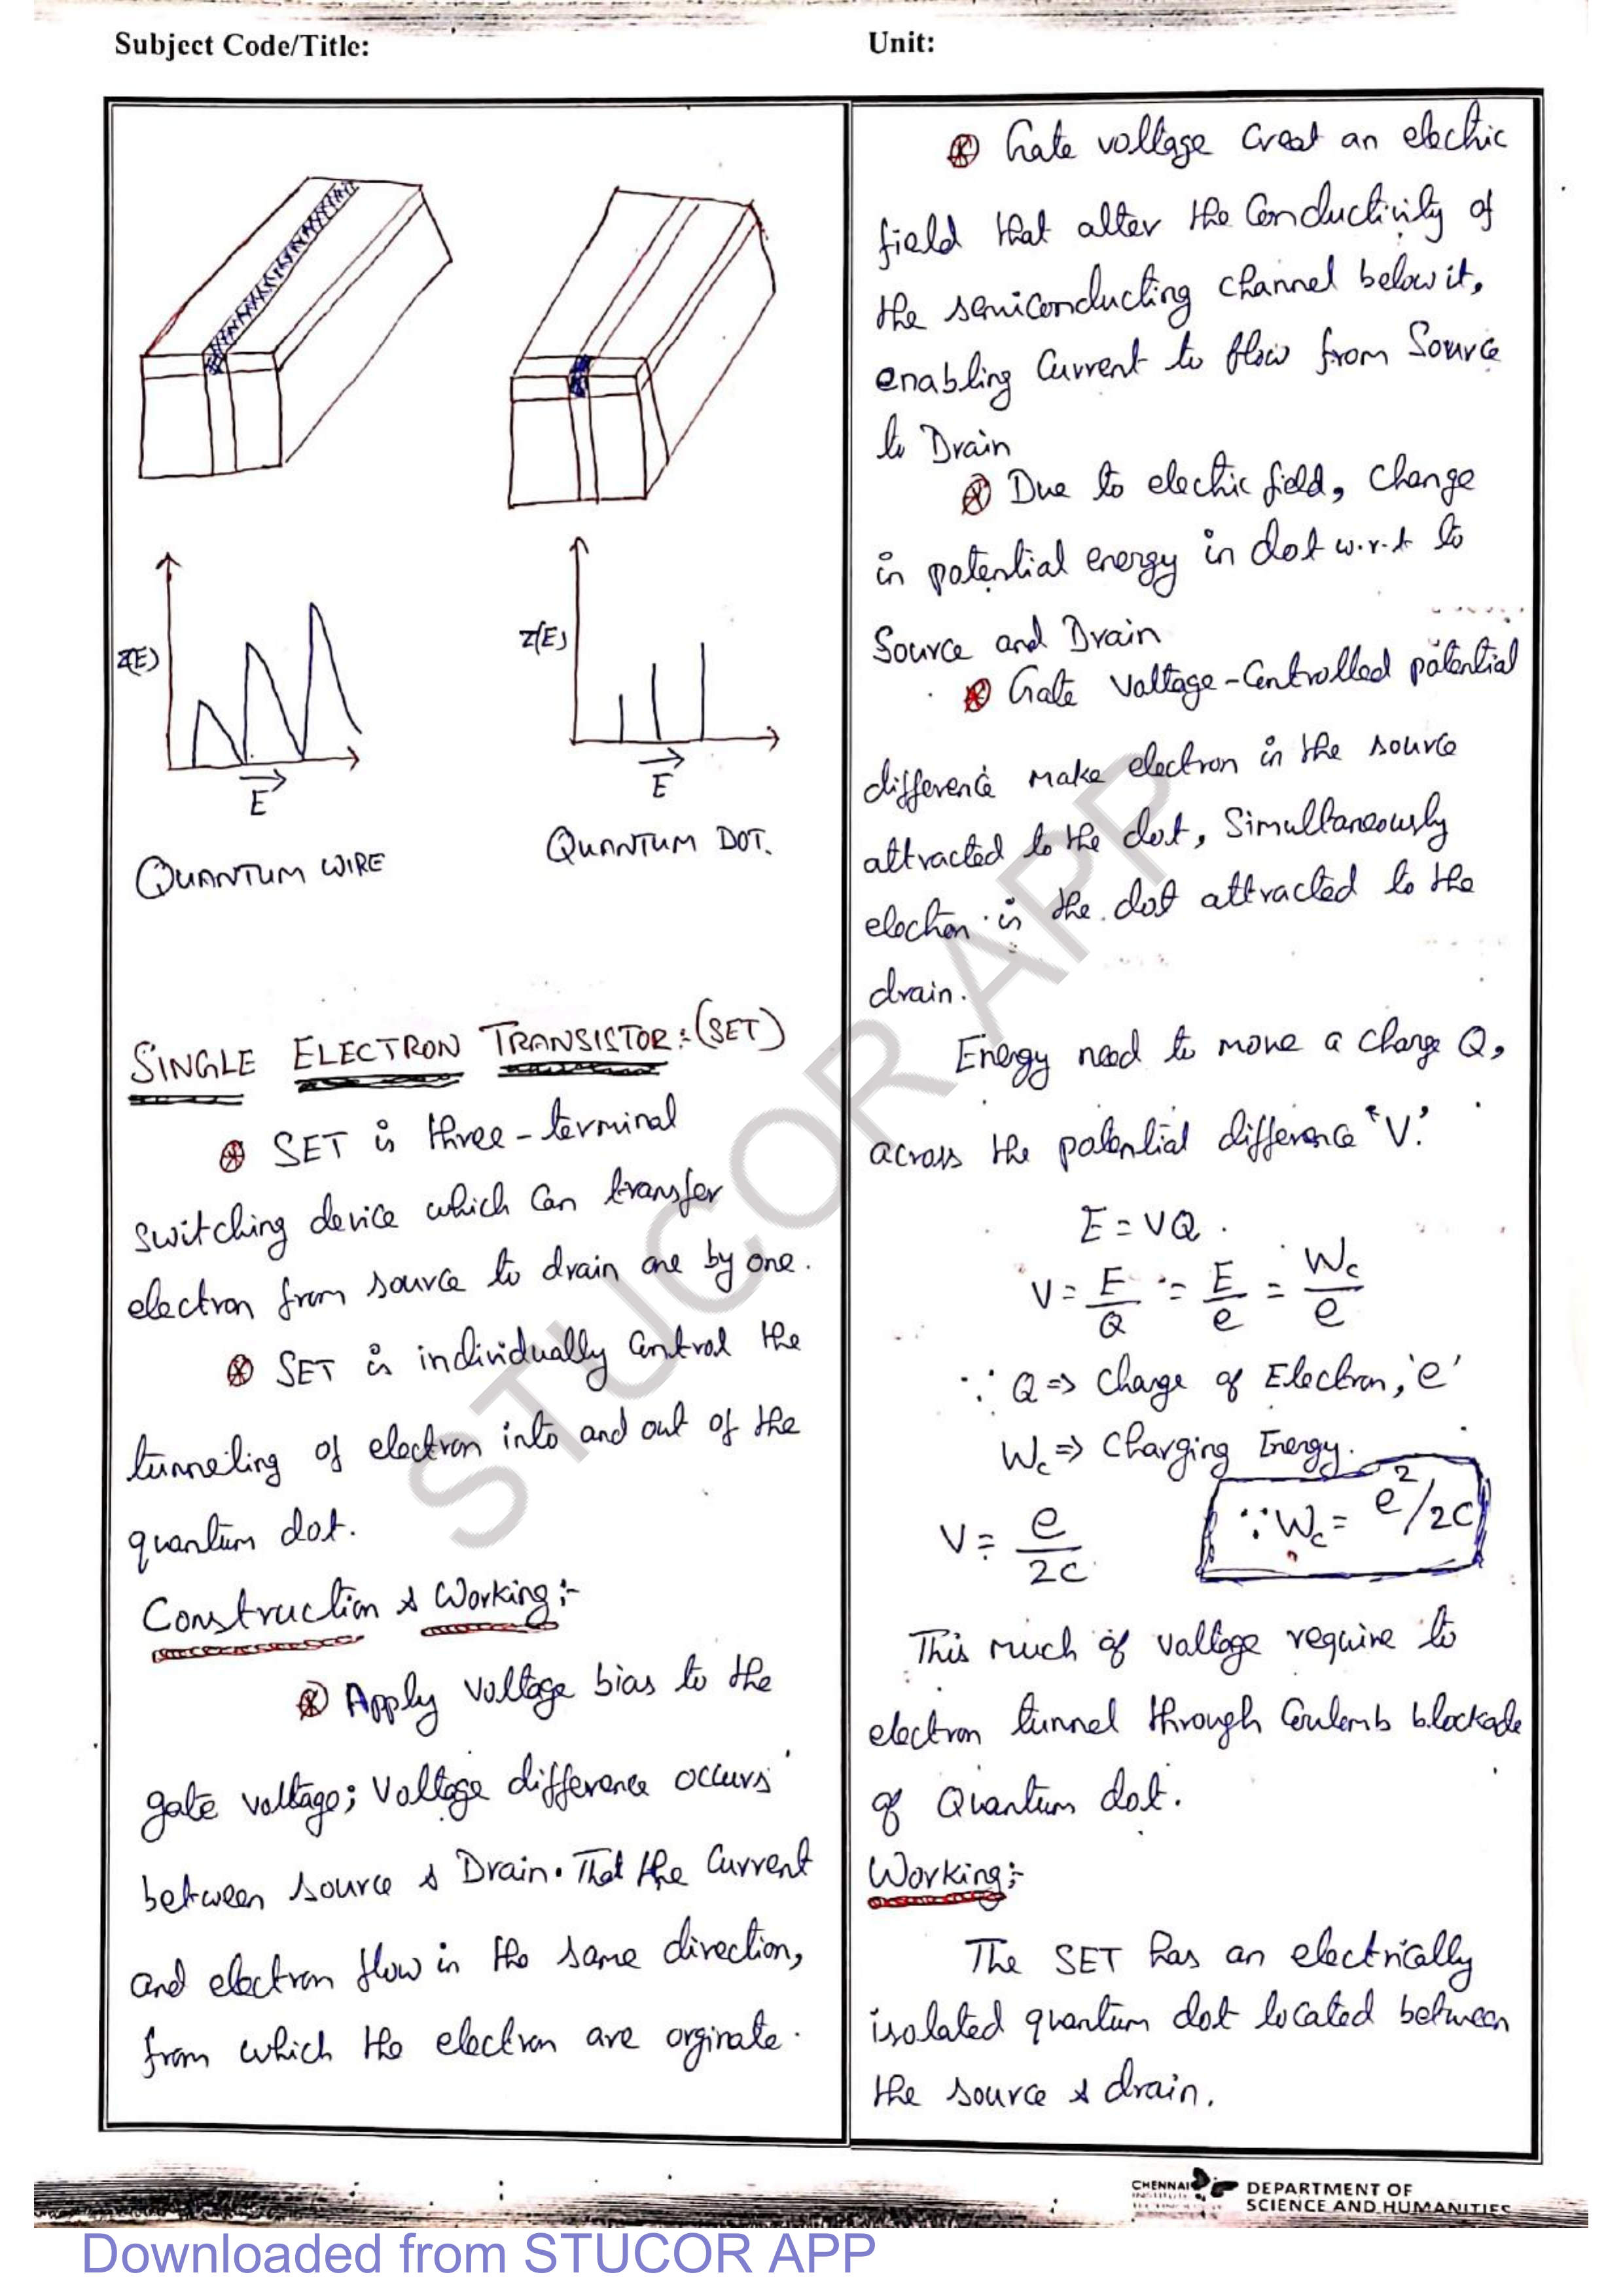 Subject Code/Title:
Unit:
Z(E)
E
QUANTUM WIRE
Z(E)
E
QUANTUM DOT.
SINGLE ELECTRON TRANSISTOR: (SET)
SET is three-terminal
switching device which can transfer
electron from source to drain one by one.
SET is individually control the
tunneling of electron into and out of the
quantum dot.
Construction & Working:-
Apply voltage bias to the
gate voltage; Voltage difference occurs
between source & Drain. That the current
and electron flow in the same direction,
from which the electron are orginate.
Gate voltage creat an electric
field that alter the conductivity of
the semiconducting channel below it,
enabling current to flow from Source
to Drain
Due to electric field, change
in potential energy in dot w.r.t to
Source and Drain
Gate Voltage-Controlled potential
difference make electron in the source
attracted to the dot, Simultaneously
electron in the dot attracted to the
drain.
Energy need to move a charge Q,
across the potential difference 'V'.
E = VQ.
V = E/Q = E/e = Wc/e
∵ Q => Charge of Electron, 'e'
Wc => Charging Energy.
V = e/2c ∵ Wc = e²/2c
This much of valtage require to
electron tunnel through Coulomb blockade
of Quantum dot.
Working:-
The SET has an electrically
isolated quantum dot located between
the source & drain.
STUCOR APP
CHENNAI
DEPARTMENT OF
SCIENCE AND HUMANITIES
Downloaded from STUCOR APP